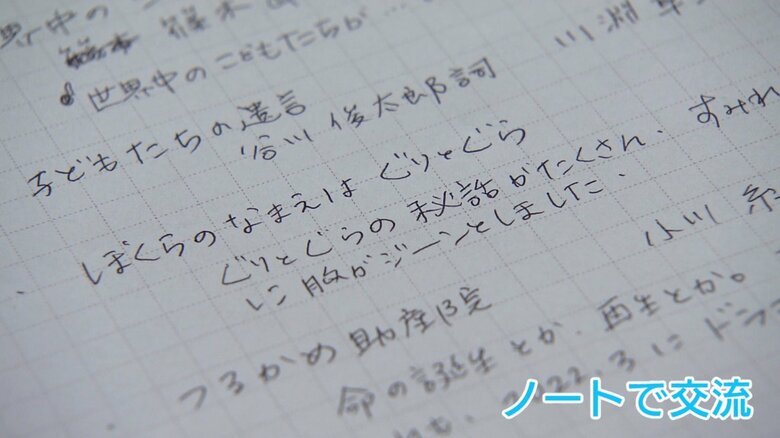 世界中のこどもたちが…
子どもたちの遺言
谷川俊太郎詞
・ぼくらのなまえは ぐりとぐら
ぐりとぐらの秘話がたくさん、すみれ
に胸がジーンとしました。
小川 糸
・つるかめ助産院
命の誕生とか、再生とか。
2022.3に ドラ
ノートで交流